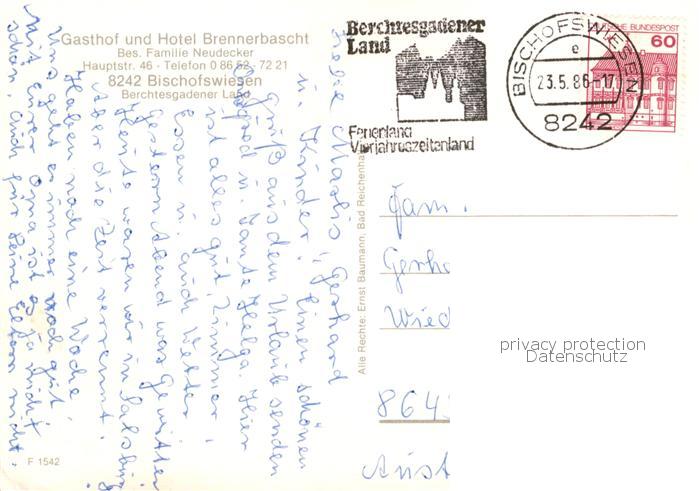 Gasthof und Hotel Brennerbascht
Bes. Familie Neudecker
Hauptstr. 46 - Telefon 0 86 52 - 72 21
8242 Bischofswiesen
Berchtesgadener Land
Liebe Gerhard
u. Kinder! Einen schönen
Gruß aus dem Urlaub senden
Opa u. Tante Helga. Hier
ist alles gut Zimmer,
Essen u. auch Wetter.
Gestern Abend war Gewitter
Heute waren wir in Salzburg
Aber die Zeit verrennt.
Haben noch eine Woche.
Uns geht es immer noch gut.
Mit Eurer Oma ist es ja nicht
schön, auch für Deine Eltern nicht.
F 1542
Alle Rechte: Ernst Baumann, Bad Reichenha
Berchtesgadener
Land
Ferienland
Vierjahreszeitenland
BISCHOFSWIESEN
e
23.5.86-17
8242
DEUTSCHE BUNDESPOST
60
Fam.
Gerh
Wied
864
Aust
privacy protection
Datenschutz